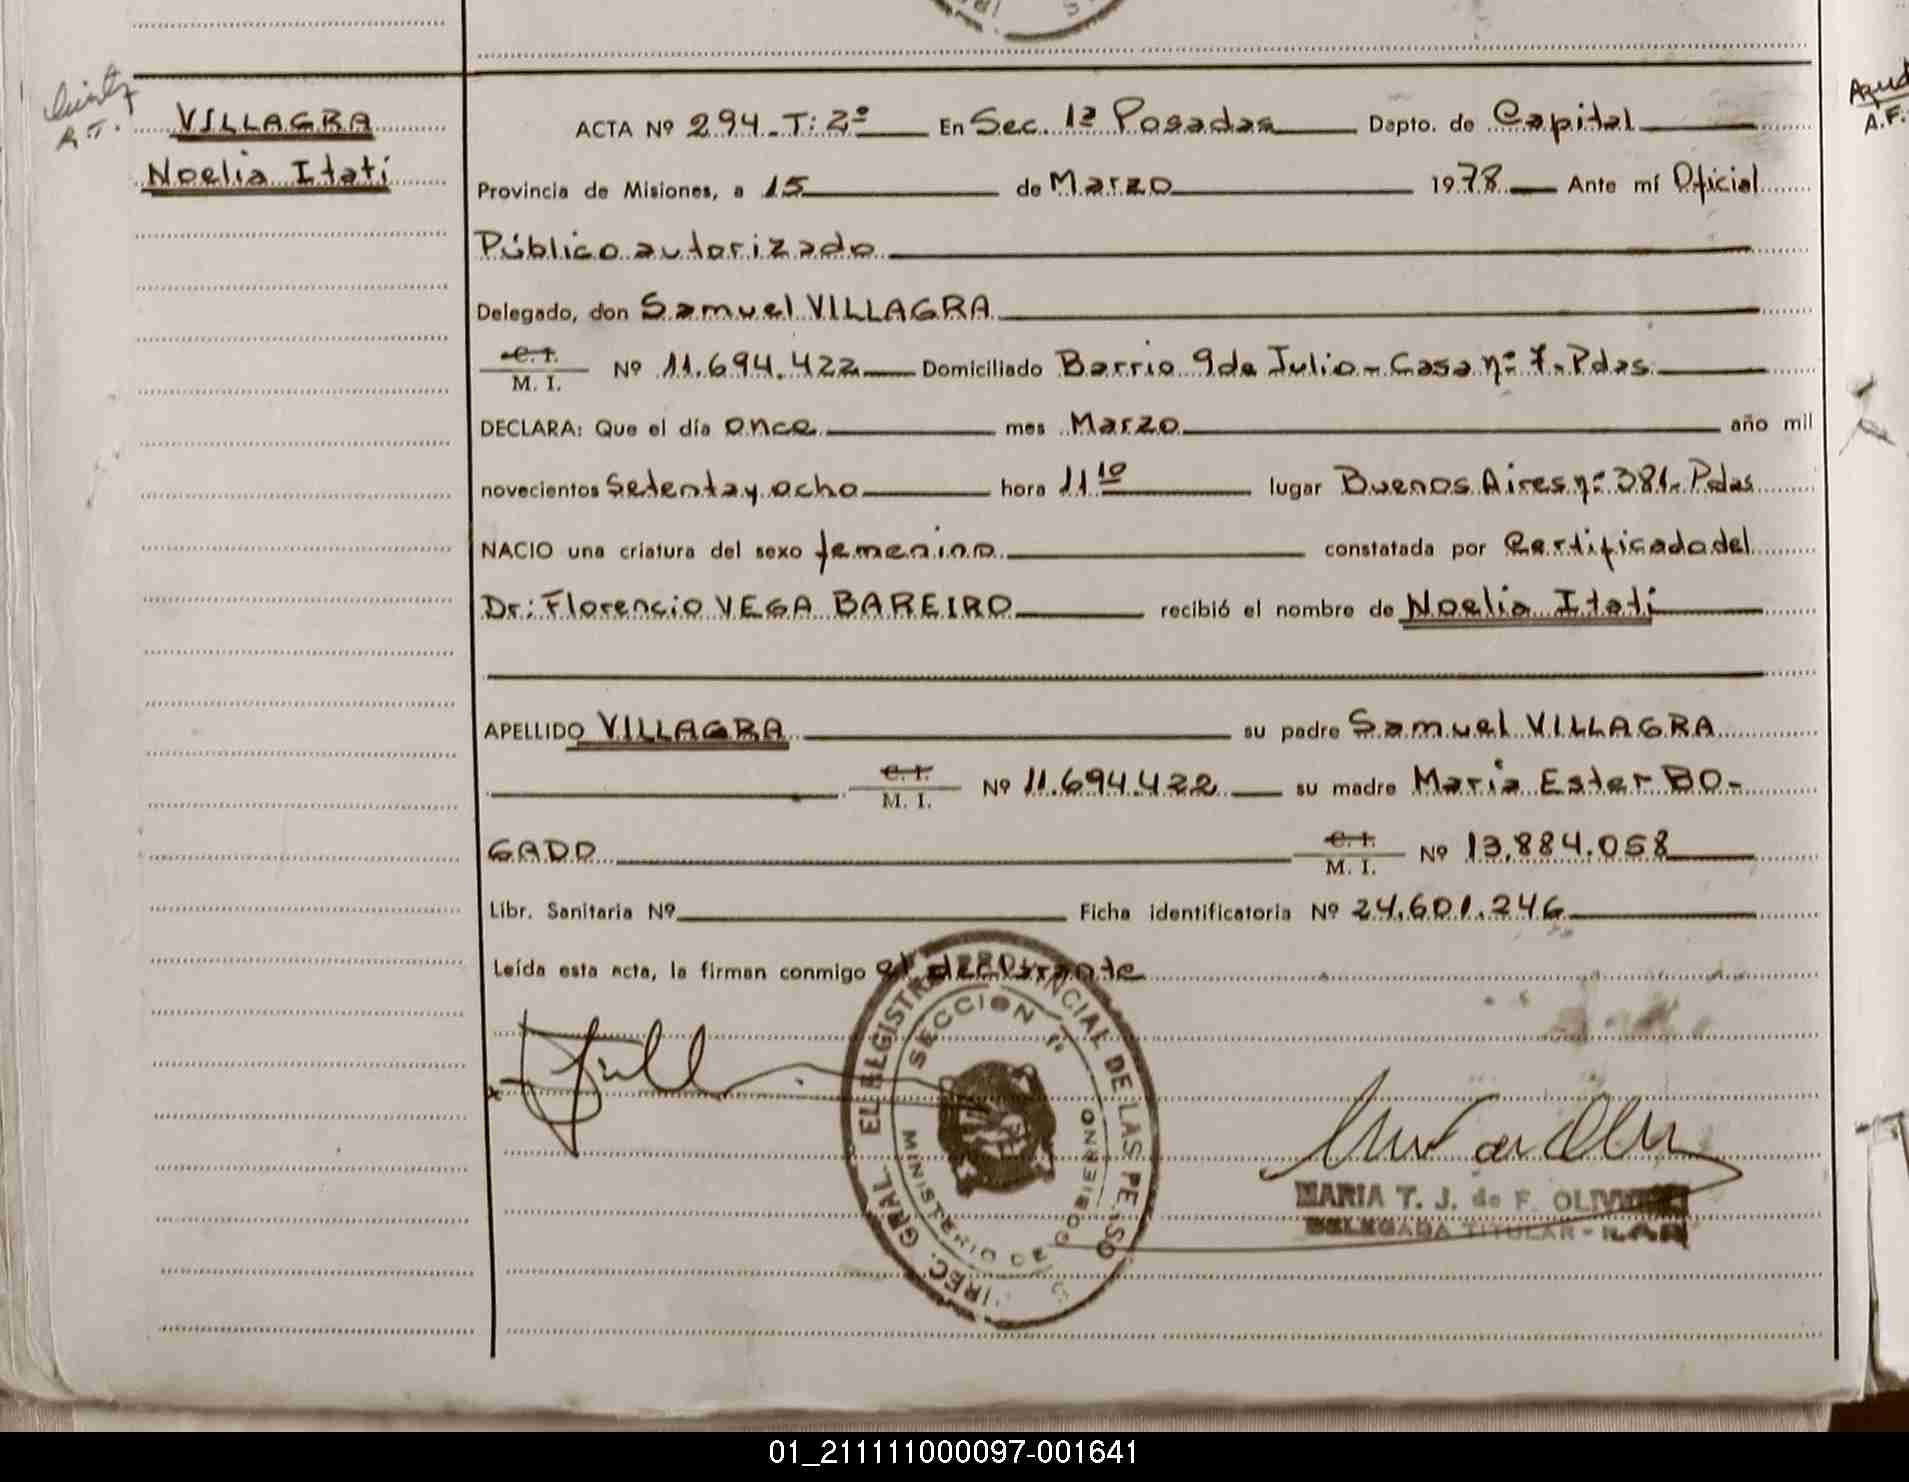 VILLAGRA
Noelia Itatí
ACTA Nº 294. T: 2º En Sec. 1ª Posadas Dapto. de Capital
Provincia de Misiones, a 15 de Marzo 1978 Ante mí Oficial
Público autorizado
Delegado, don Samuel VILLAGRA
C. I.
M. I. Nº 11.694.422 Domiciliado Barrio 9 de Julio - Casa nº 7. Pdas.
DECLARA: Que el día once mes Marzo año mil
novecientos setenta y ocho hora 11 10 lugar Buenos Aires nº 381. Pdas
NACIO una criatura del sexo femenino constatada por Certificado del
Dr: Florencio VEGA BAREIRO recibió el nombre de Noelia Itatí
APELLIDO VILLAGRA su padre Samuel VILLAGRA
C. I.
M. I. Nº 11.694.422 su madre Maria Ester BO-
GADO C. I.
M. I. Nº 13.884.058
Libr. Sanitaria Nº Ficha identificatoria Nº 24.601.246
Leída esta acta, la firman conmigo el declarante
SECCION 1ª
MINISTERIO DE GOBIERNO
MARIA T. J. de F.
DELEGADA TITULAR -
A.F.
01_211111000097-001641